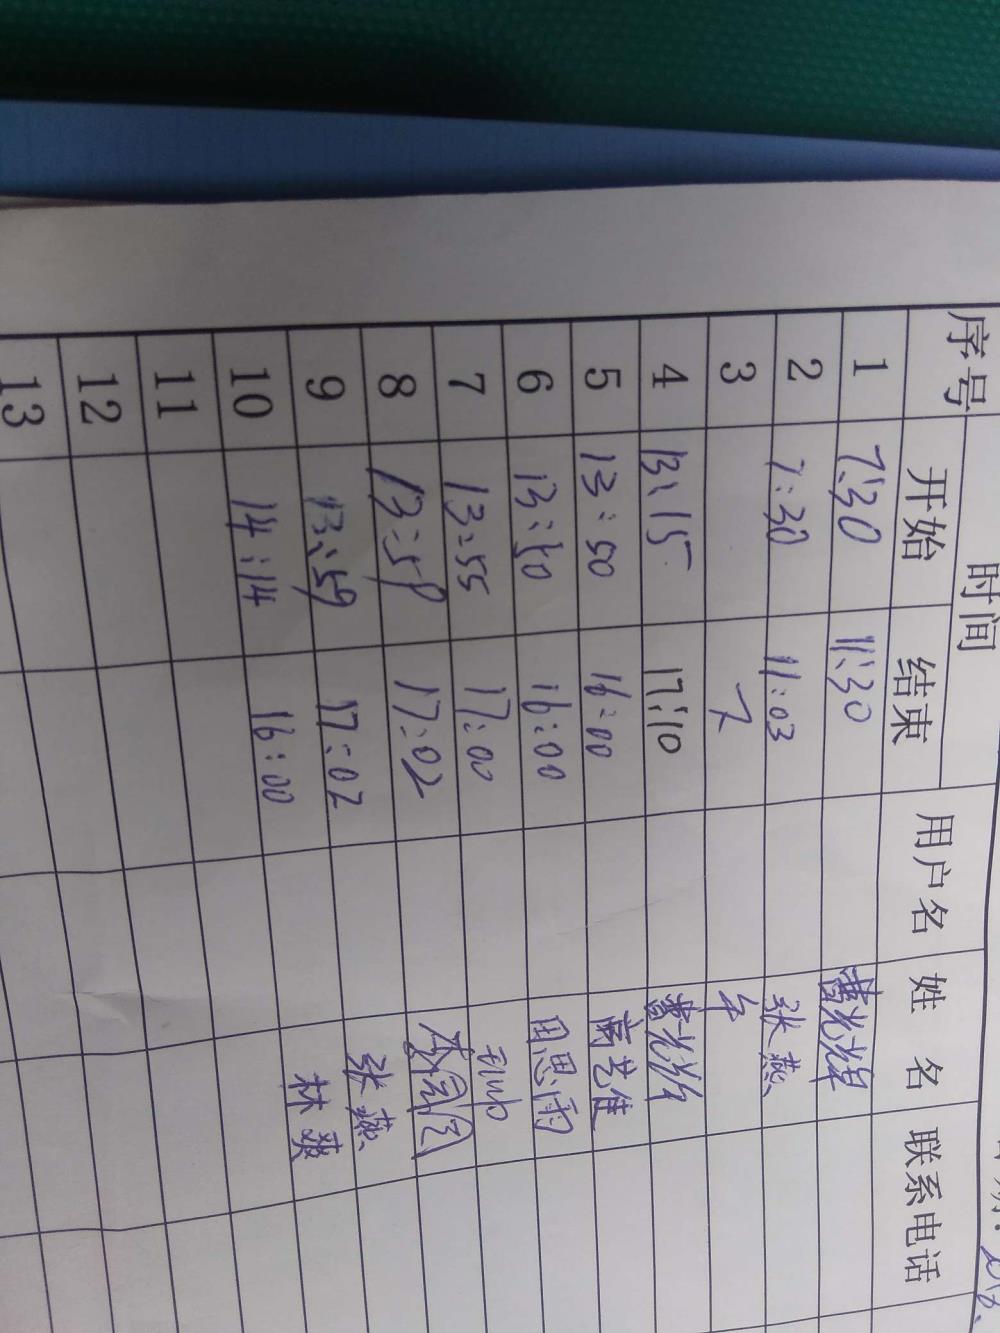 序号 时间 用户名 姓名 联系电话
开始 结束
1 7:30 11:30 曹光辉
2 7:30 11:03 张燕
3 下 午
4 13:15 17:10 曹光辉
5 13:50 16:00
6 13:50 16:00 田思雨
7 13:55 17:00
8 13:58 17:02
9 13:59 17:02 张燕
10 14:14 16:00 林爽
11
12
13